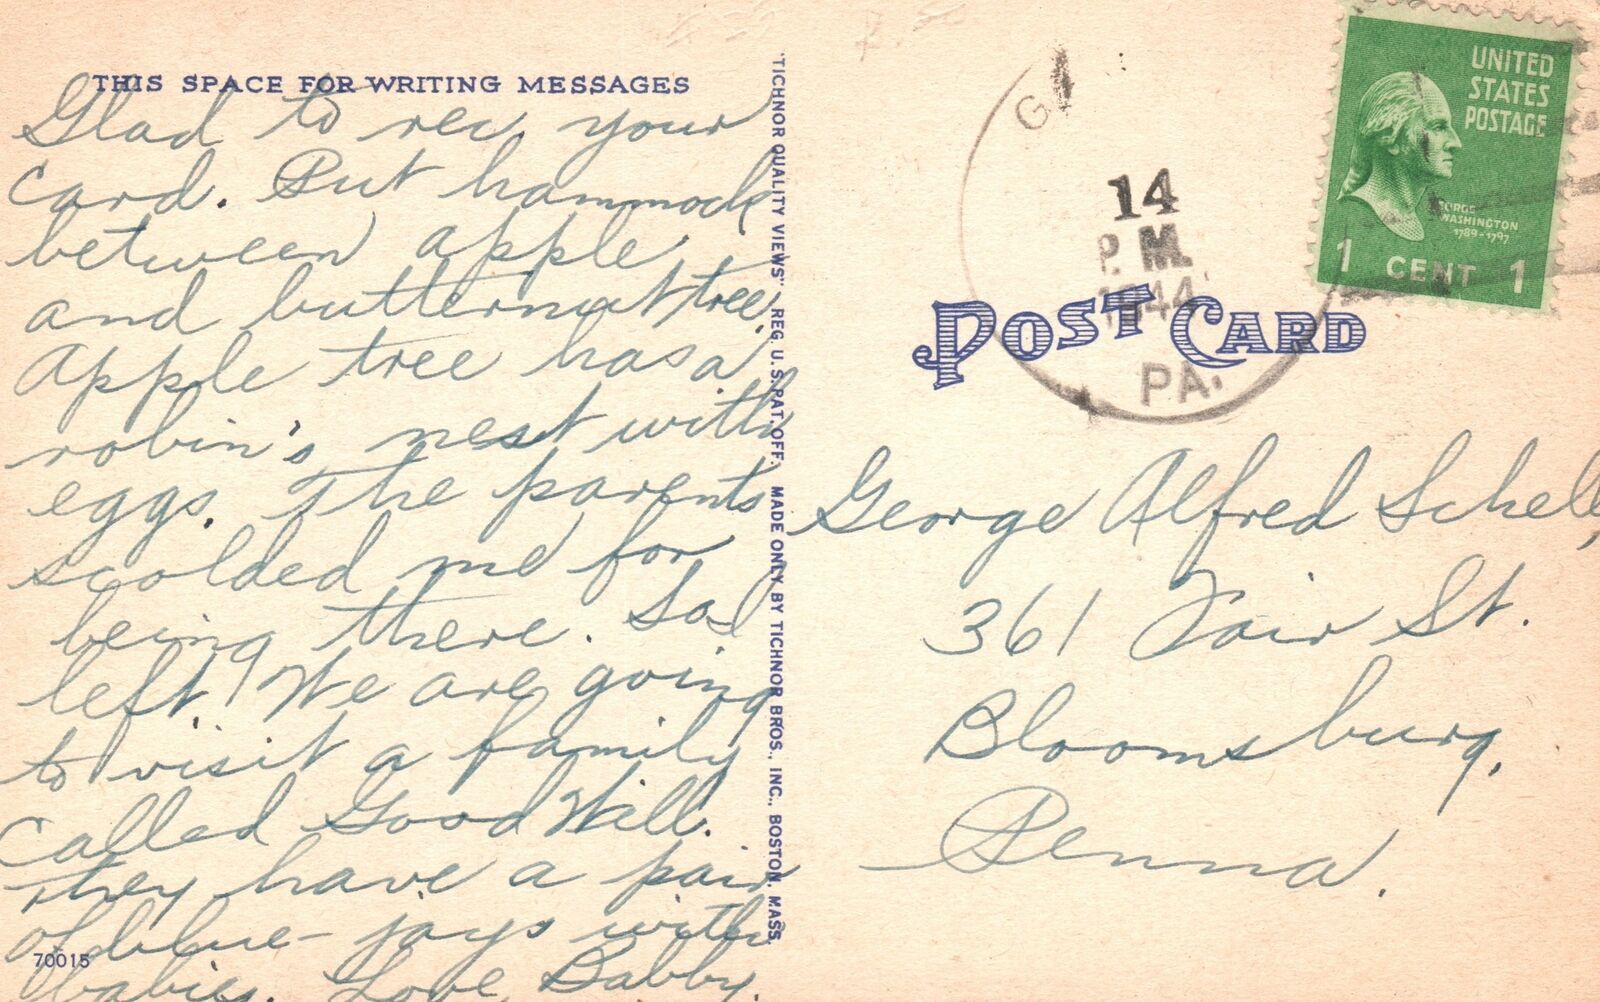 THIS SPACE FOR WRITING MESSAGES
Glad to rec. your
card. Put hammock
between apple
and butternut tree.
Apple tree has a
robin's nest with
eggs. The parents
scolded me for
being there. So I
left! We are going
to visit a family
called Good Will.
They have a pair
of blue-jays with
babies. Love Babby.
70015
"TICHNOR QUALITY VIEWS" REG. U.S. PAT. OFF. MADE ONLY BY TICHNOR BROS., INC., BOSTON, MASS.
G
14
P.M.
1944
PA.
UNITED
STATES
POSTAGE
GEORGE
WASHINGTON
1789-1797
1 CENT 1
POST CARD
George Alfred Schell,
361 Fair St.
Bloomsburg,
Penna.